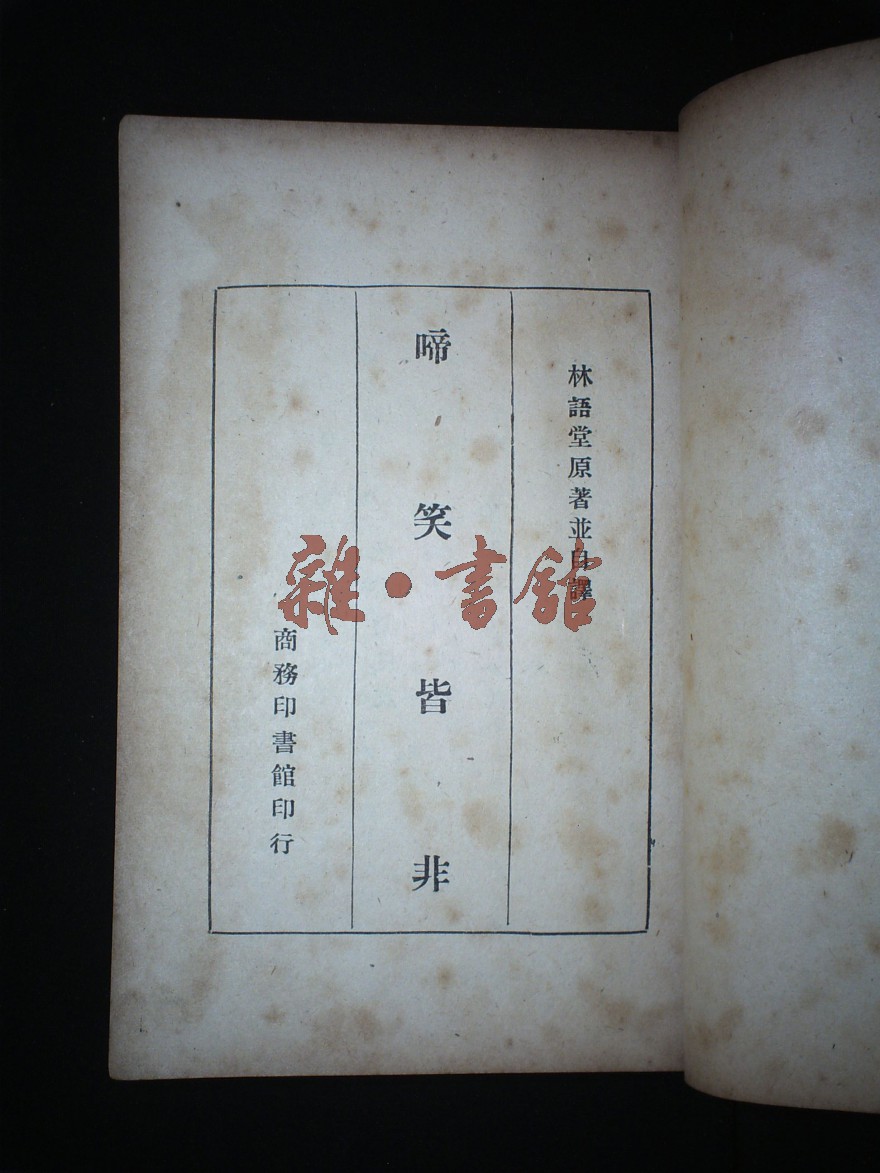 林語堂原著並自譯
啼笑皆非
商務印書館印行
雜·書館